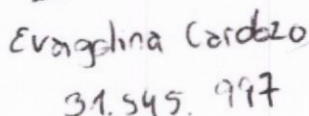 Evangelina Cardozo
31.545.997